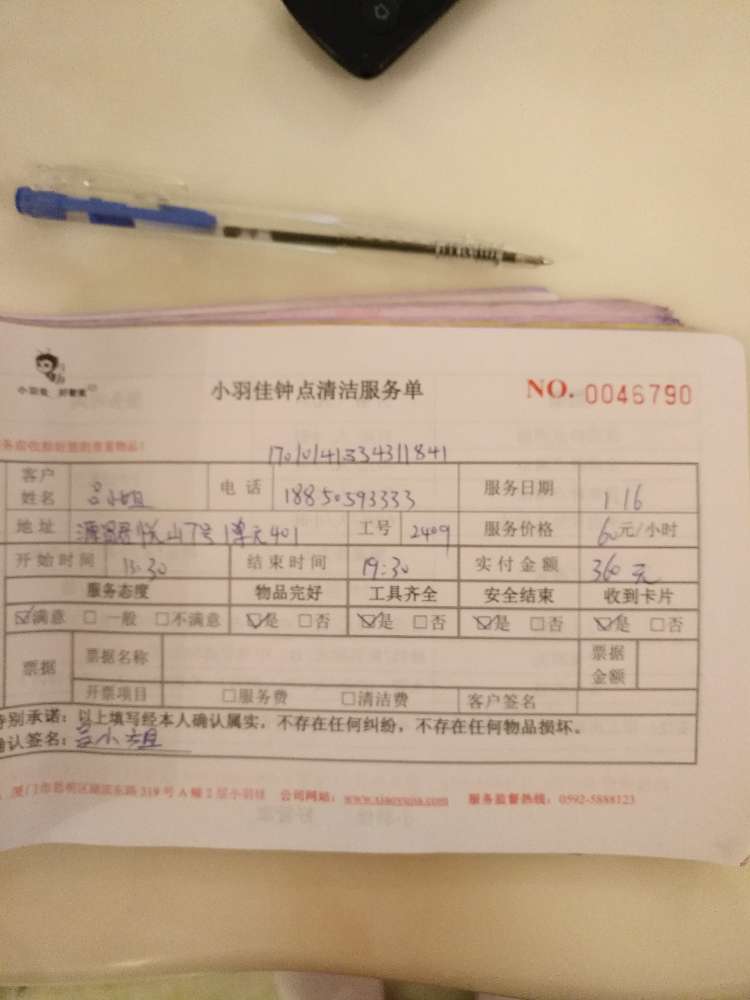 小羽佳 好管家
小羽佳钟点清洁服务单 NO. 0046790
客户姓名 吕小姐 电话 18850593333 服务日期 1 16
地址 山7号 401 工号 2409 服务价格 60元/小时
开始时间 13:30 结束时间 19:30 实付金额 360 元
服务态度 物品完好 工具齐全 安全结束 收到卡片
☑满意 □一般 □不满意 ☑是 □否 ☑是 □否 ☑是 □否 ☑是 □否
票据 票据名称 票据金额
开票项目 □服务费 □清洁费 客户签名
特别承诺：以上填写经本人确认属实，不存在任何纠纷，不存在任何物品损坏。
确认签名：吕小姐
厦门市思明区湖滨东路319号A幢2层小羽佳 公司网站：www.xiaoyujia.com 服务监督热线：0592-5888123